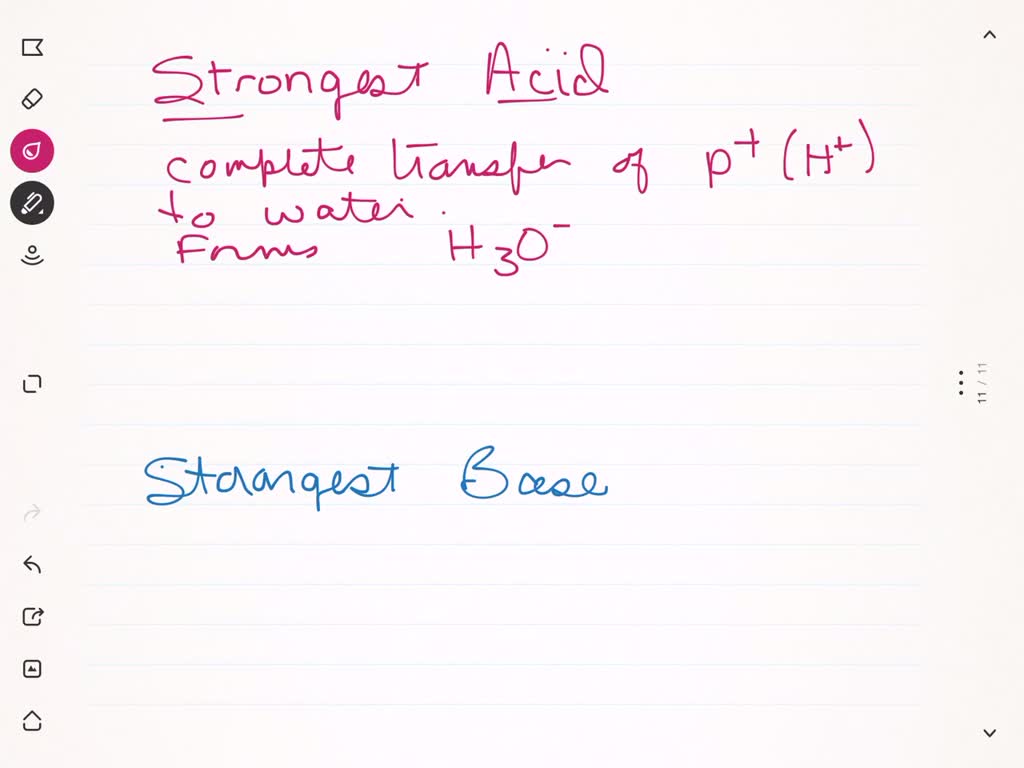 Strongest Acid
complete transfer of p⁺ (H⁺)
to water.
Forms H₃O⁻
Strongest Base
11 / 11